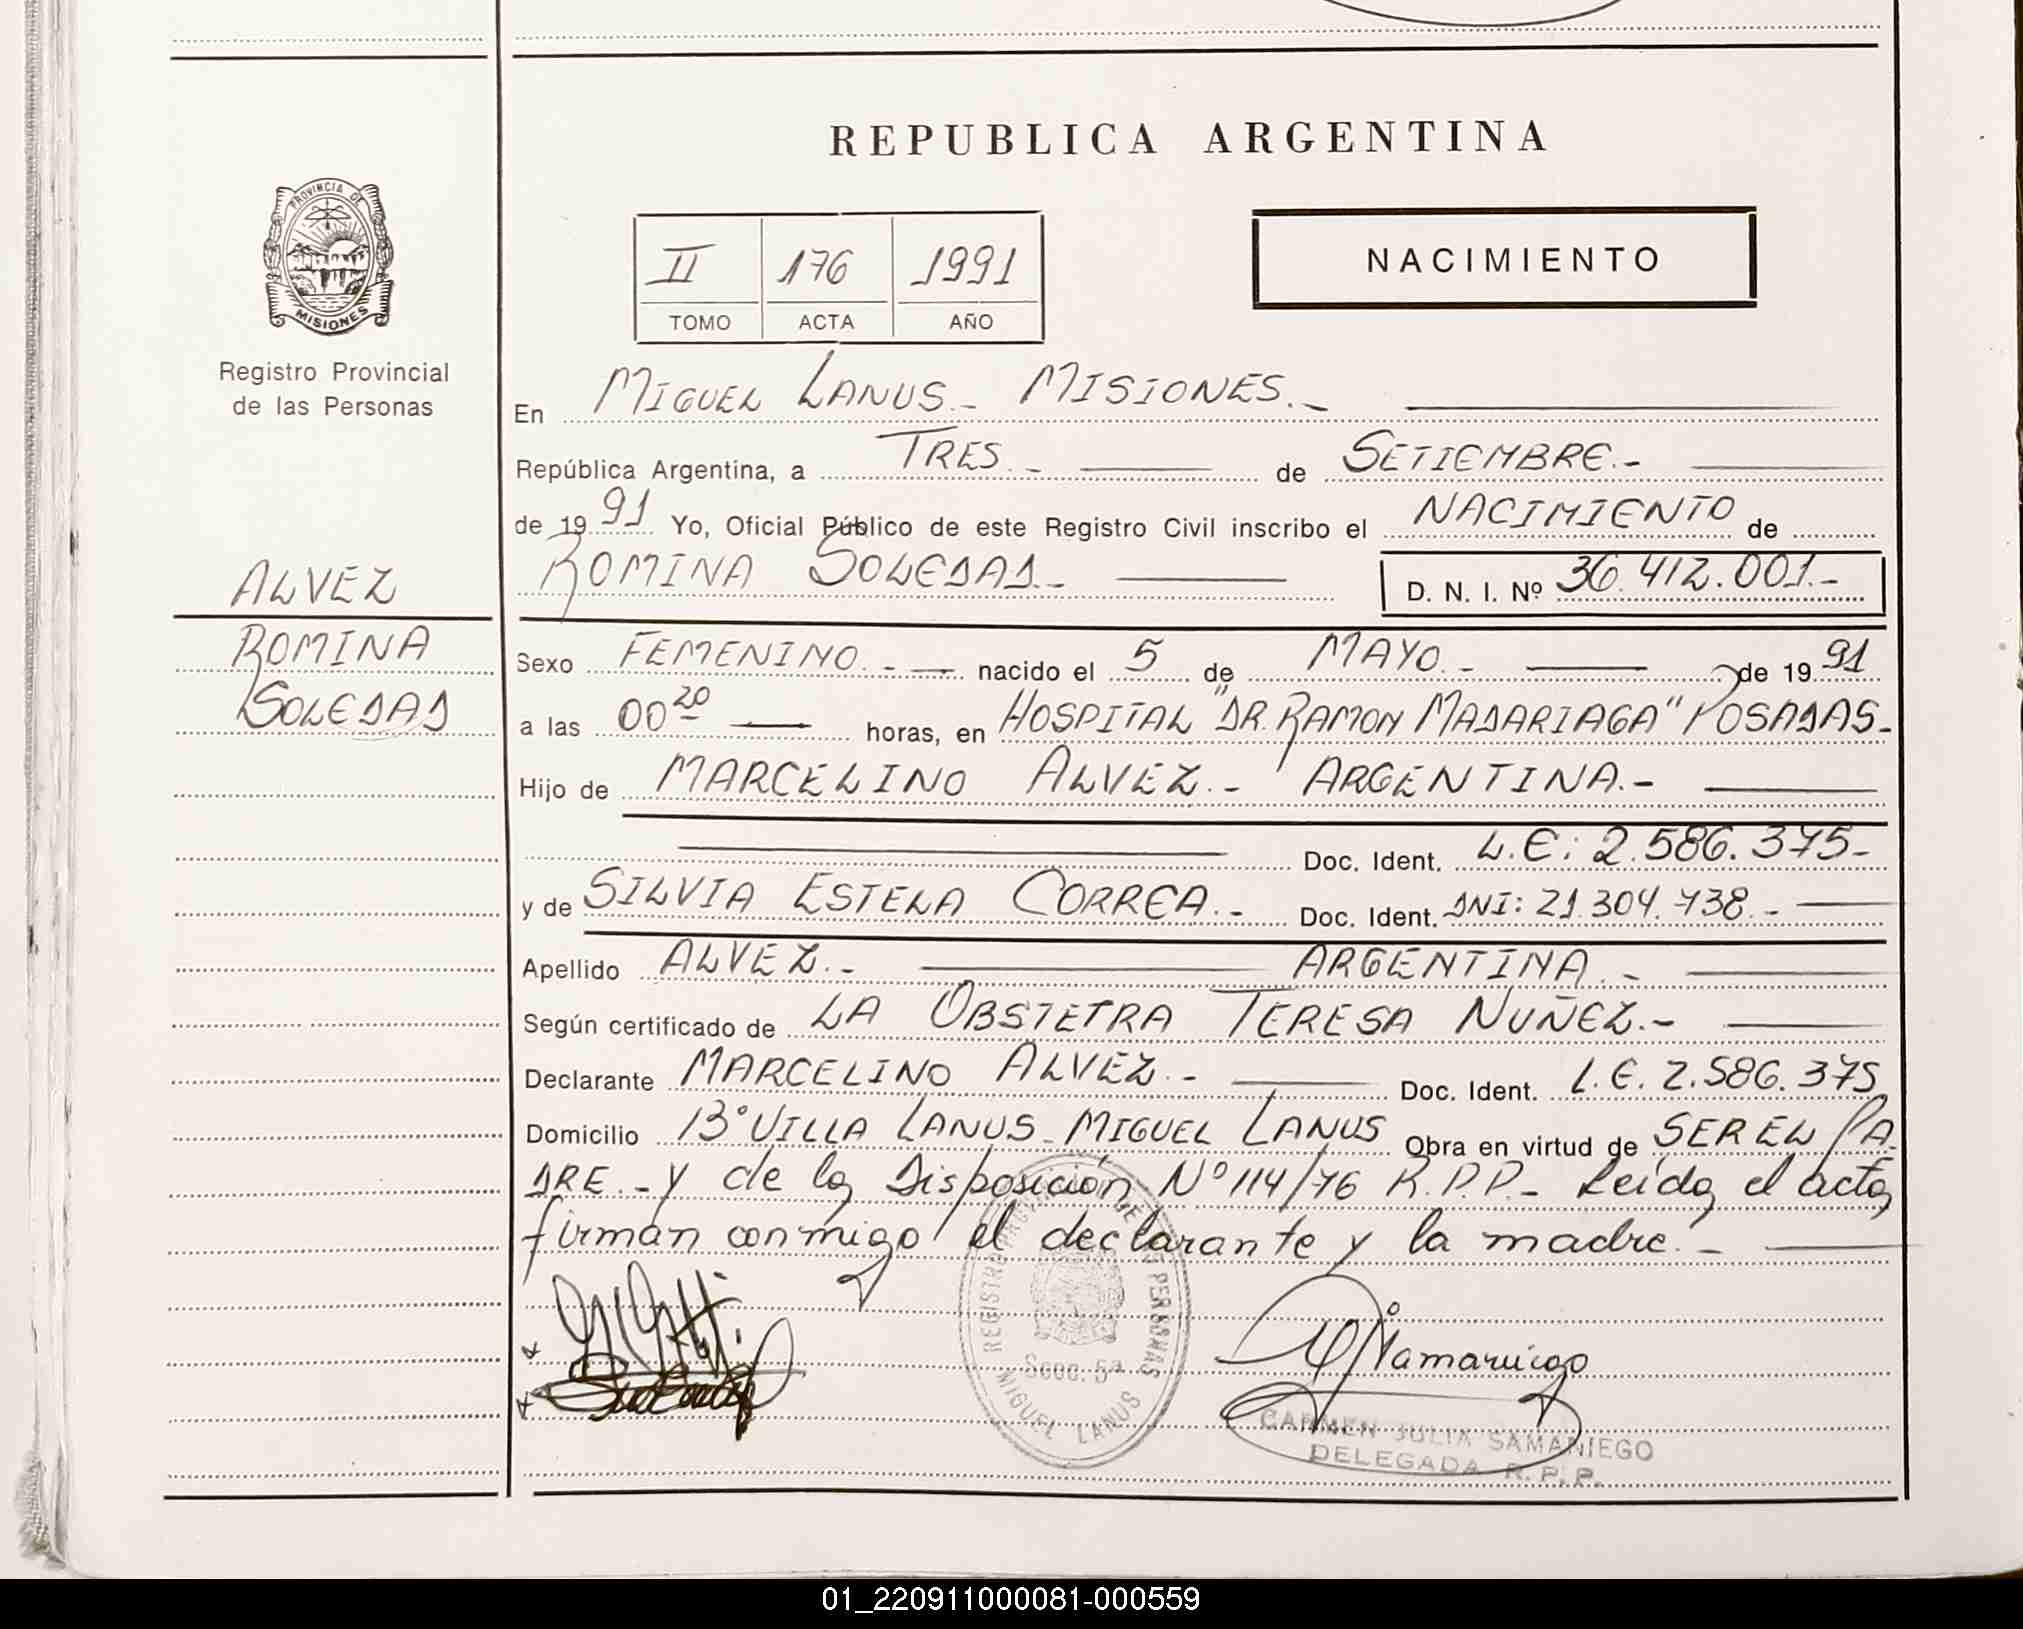 REPUBLICA ARGENTINA
PROVINCIA DE
MISIONES
Registro Provincial
de las Personas
II 176 1991
TOMO ACTA AÑO
NACIMIENTO
En MIGUEL LANUS.- MISIONES.-
República Argentina, a TRES.- de SETIEMBRE.-
de 1991 Yo, Oficial Público de este Registro Civil inscribo el NACIMIENTO de
ROMINA SOLEDAD.- D. N. I. Nº 36.412.001.-
ALVEZ
ROMINA
SOLEDAD
Sexo FEMENINO.- nacido el 5 de MAYO.- de 1991
a las 00 20 horas, en HOSPITAL "DR. RAMON MADARIAGA" POSADAS-
Hijo de MARCELINO ALVEZ.- ARGENTINA.-
Doc. Ident. L.E: 2.586.375-
y de SILVIA ESTELA CORREA.- Doc. Ident. DNI: 21.304.738.-
Apellido ALVEZ.- ARGENTINA.-
Según certificado de LA OBSTETRA TERESA NUÑEZ.-
Declarante MARCELINO ALVEZ.- Doc. Ident. L.E. 2.586.375
Domicilio Bº VILLA LANUS - MIGUEL LANUS Obra en virtud de SER EL PA-
DRE.- y de la Disposición Nº 114/76 R.P.P.- Leída el acta,
firman conmigo el declarante y la madre.-
REGISTRO DE PERSONAS
Secc. 5ª
MIGUEL LANUS
Samaniego
CARMEN JULIA SAMANIEGO
DELEGADA R.P.P.
01_220911000081-000559